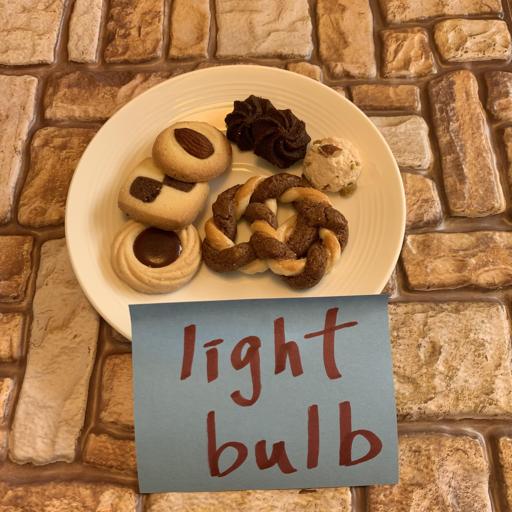 light
bulb